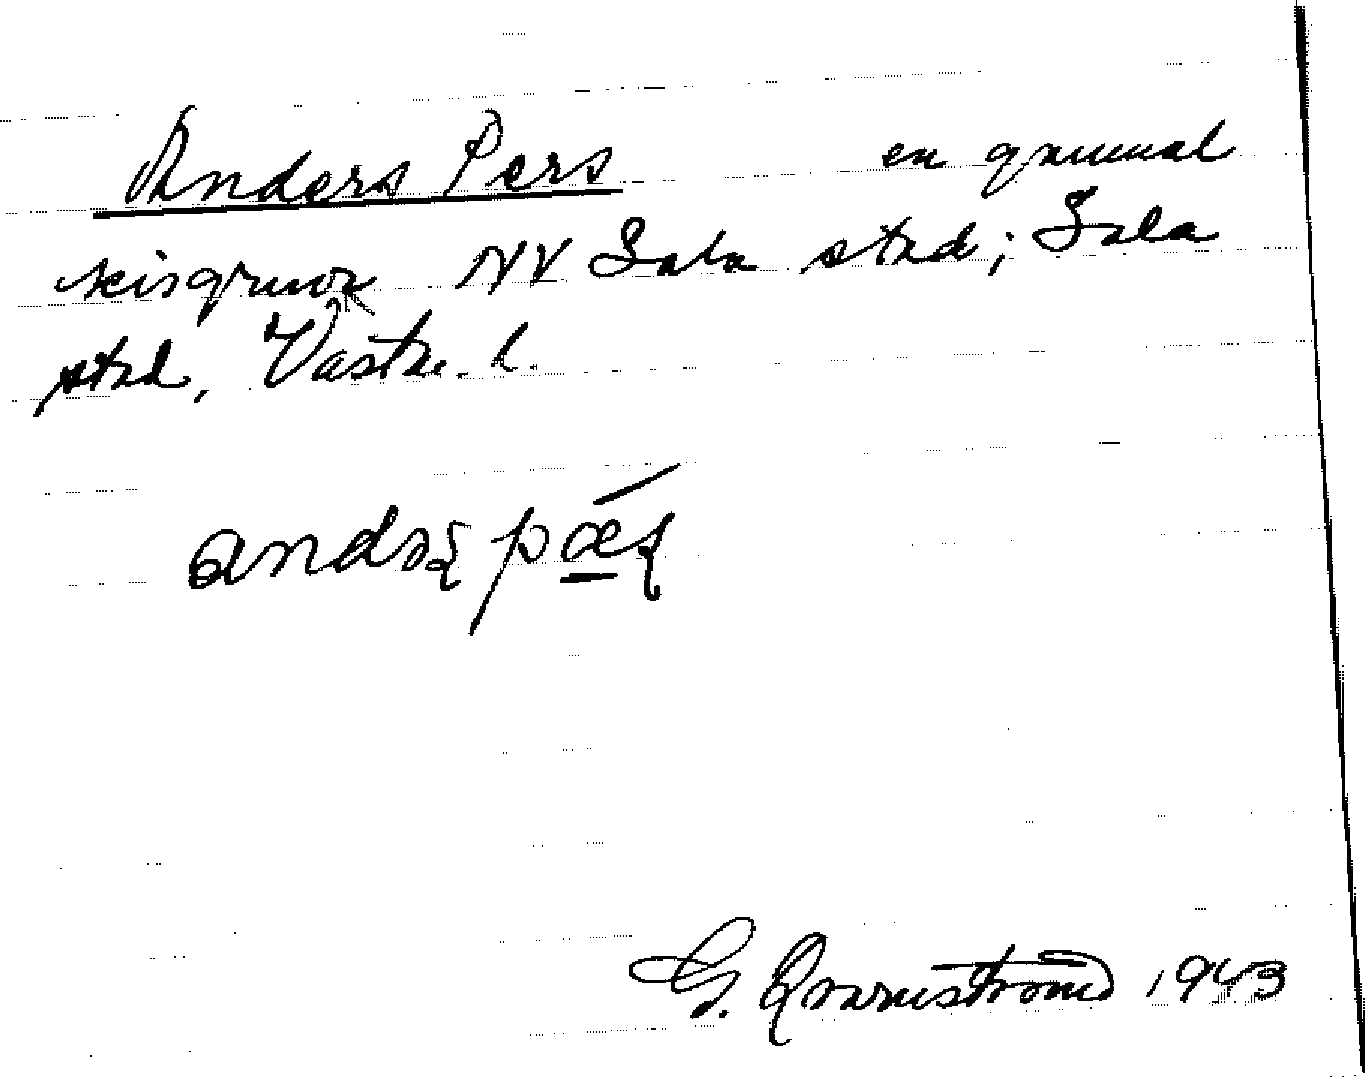 Anders Pers en gammal
skisgruva NV Sala stad; Sala
stad, Västm. l.
G. Kvarnström 1943